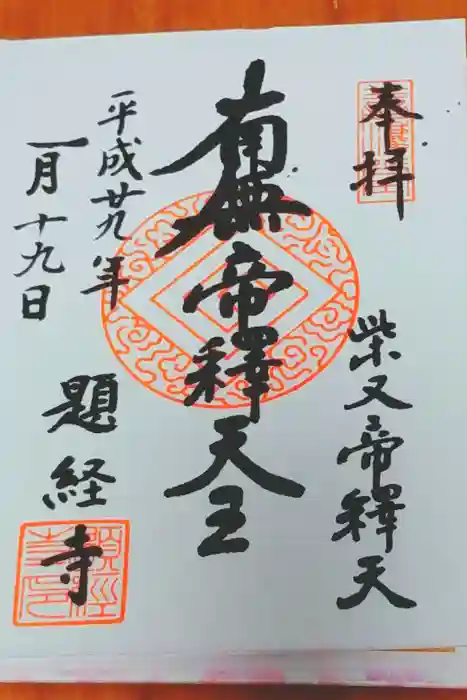 奉拝
柴又帝釋天
南無帝釋天王
平成廿九年
一月十九日
題経寺